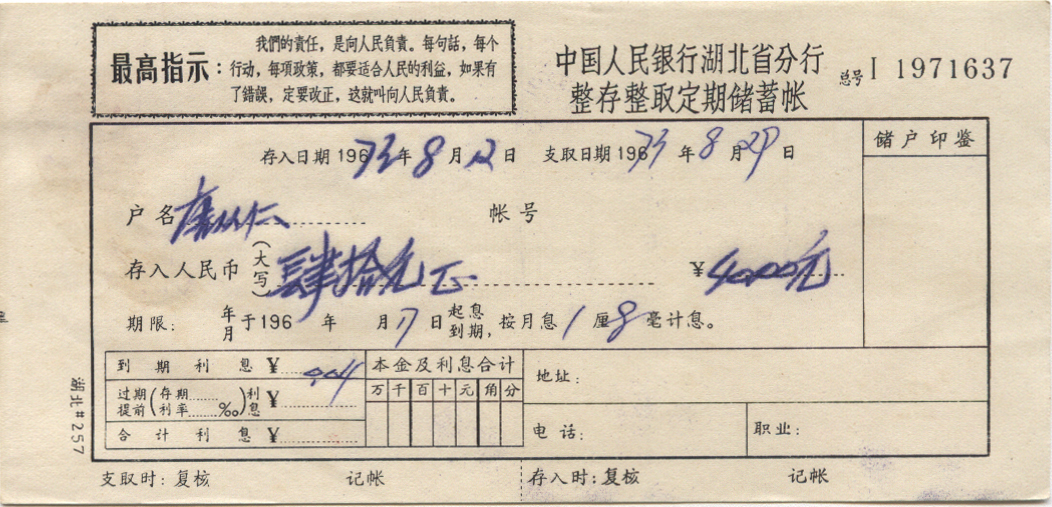 最高指示：
我們的責任，是向人民負責。每句話，每个
行动，每項政策，都要适合人民的利益，如果有
了錯誤，定要改正，这就叫向人民負責。
中国人民银行湖北省分行
整存整取定期储蓄帐
总号 I 1971637
存入日期 196 73 年 8 月 12 日 支取日期 196 73 年 8 月 29 日
储户印鉴
户名
帐号
存入人民币（大写）肆拾元正 ¥ 40.00元
期限： 年月 于196 年 月 17 日 起息到期， 按月息 1 厘 8 毫计息。
到期利息 ¥ 0.04
本金及利息合计
过期提前（存期利率 ‰）利息 ¥
万 千 百 十 元 角 分
合计利息 ¥
地址：
电话：
职业：
湖北#257
支取时：复核 记帐 存入时：复核 记帐